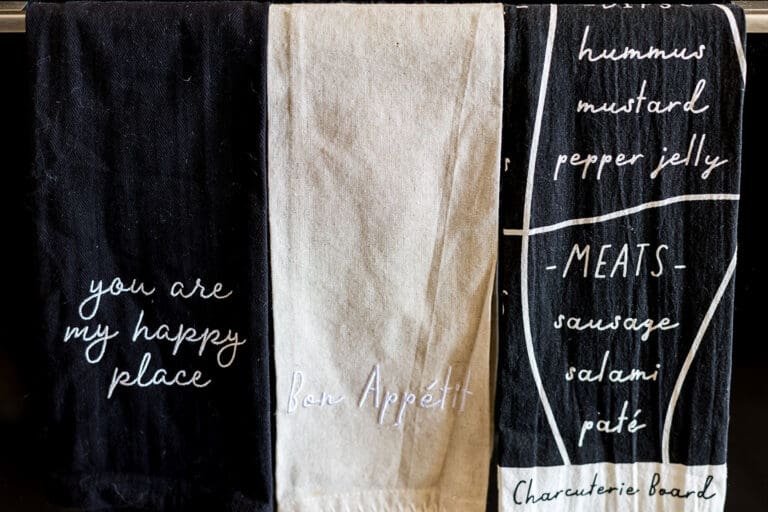 you are
my happy
place
Bon Appétit
hummus
mustard
pepper jelly
-MEATS-
sausage
salami
paté
Charcuterie Board